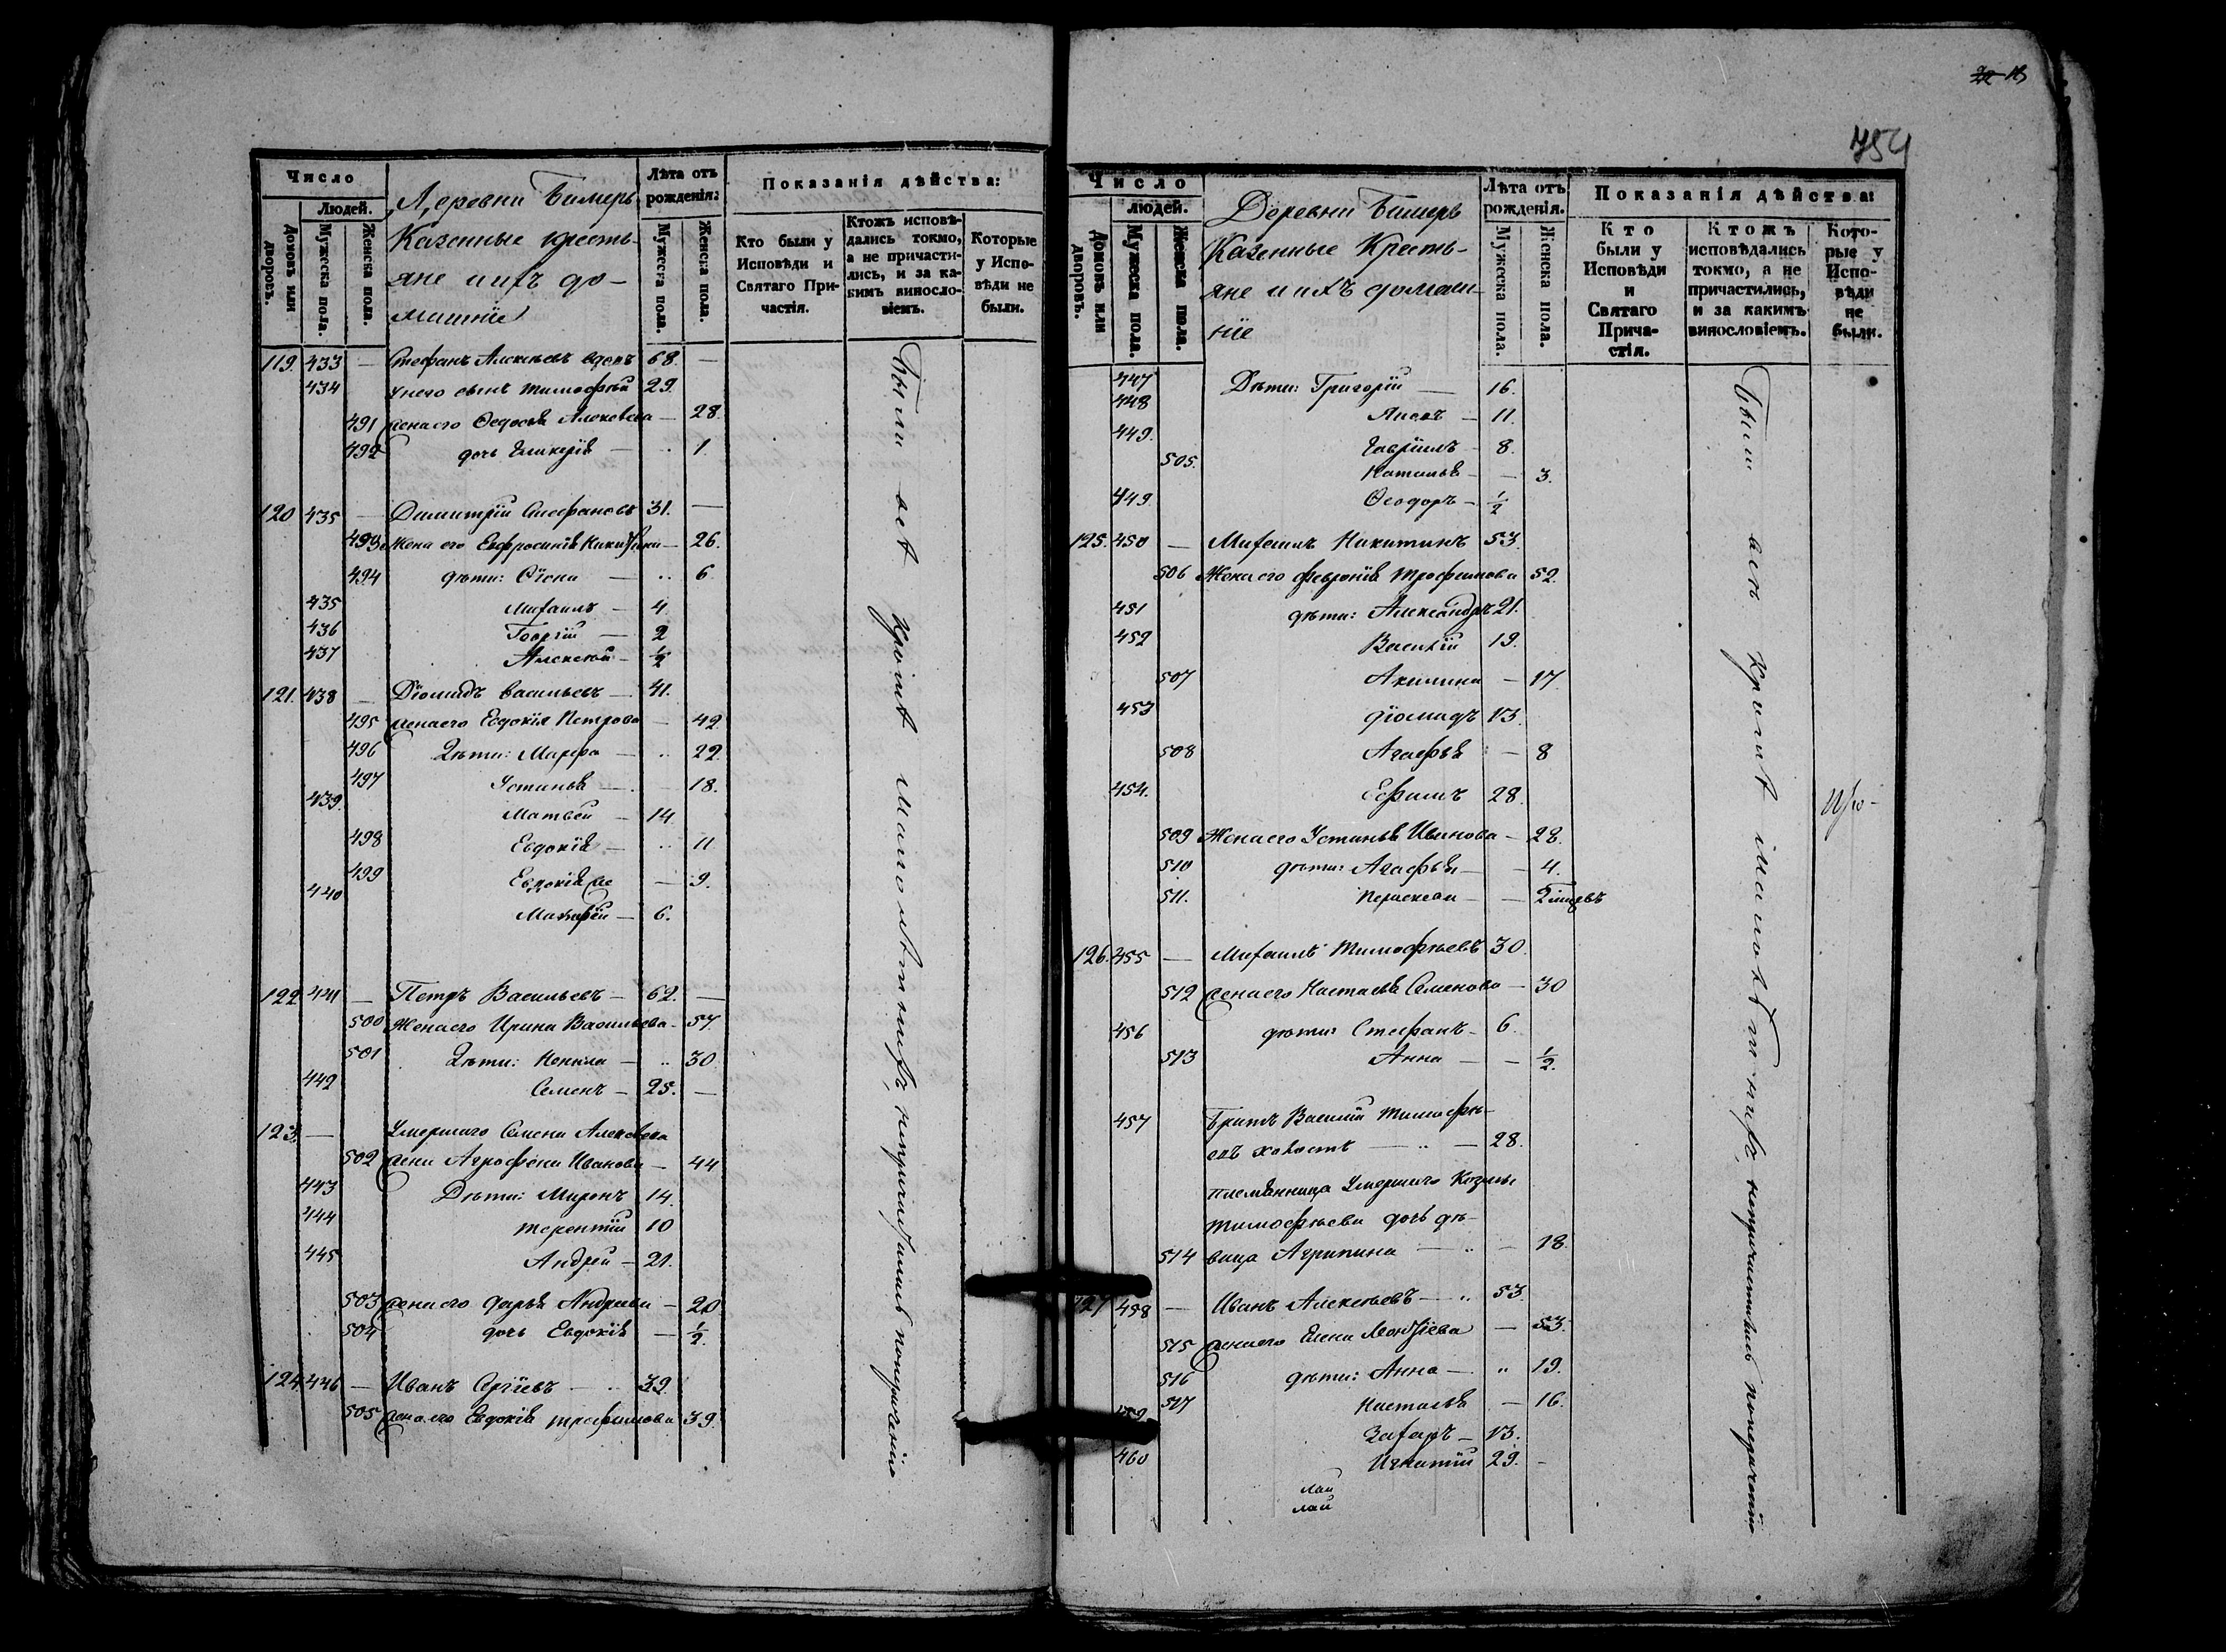 Число
Людей.
Домовъ или дворовъ.
Мужеска пола.
Женска пола.
Деревни Бимерь
Казенные кресть-
яне и ихъ до-
машніе
Лѣта отъ рожденія:
Мужеска пола.
Женска пола.
Показанія дѣйства:
Кто были у Исповѣди и Святаго Причастія.
Ктожъ исповѣдались токмо, а не причастились, и за какимъ винословіемъ.
Которые у Исповѣди не были.
119. 433 — Стефанъ Алексѣевъ вдовъ 68. —
434 у него сынъ Тимофѣй 29.
491 жена его Ѳедосья 28.
492 дочь Гликерія — 1
120 435 — Димитрій Стефановъ 31. —
493 Жена его Евфросинія 26.
494 дѣти: — 6
435 Михаилъ — 4
436 Георгій — 2
437 Алексѣй — 1/2
121. 438 — Діомидъ Васильевъ — 41.
495 жена его Евдокія Петрова — 42.
496 Дѣти: Марфа — 22.
497 Устинья — 18.
439. Матвей — 14
498 Евдокія — 11
499 Евдокія же — 9.
440 6.
122 441 — Петръ Васильевъ — 62. —
500 Жена его Ирина Васильева — 57
501 Дѣти: — 30
442 Семенъ — 25. —
123. — Умершаго Семена
502 жена Агрофена Иванова — 44
443 Дѣти: Миронъ 14.
444 Терентій 10
445 Андрей — 21.
503 жена его Дарья Андреева — 20
504 дочь Евдокія — 1/2.
124. 446 — Иванъ Сергіевъ — 39.
505 жена его Евдокія Трофимова 39.
Были всѣ непричастились
754
Число
людей.
Домовъ или дворовъ.
Мужеска пола.
Женска пола.
Деревни Бимерь
Казенные Кресть-
яне и ихъ домаш-
ніе
Лѣта отъ рожденія.
Мужеска пола.
Женска пола.
Показанія дѣйства:
Кто были у Исповѣди и Святаго Причастія.
Ктожъ исповѣдались токмо, а не причастились, и за какимъ винословіемъ.
Которые у Исповѣди не были.
447 Дѣти: Григорій — 16.
448 — 11.
449. Гавріилъ — 8.
505. Наталья — 3.
449. Ѳеодоръ — 1/2
125. 450 — Михаилъ Никитинъ 53.
506 Жена его Февронія Трофимова 52.
451 дѣти: Александръ 21.
452 Василій 19.
507 Акилина — 17.
453 Діомидъ 13.
508 Агафья — 8
454. Ефимъ 28.
509 Жена его Устинья Иванова — 28.
510 дѣти: Агафья — 4.
511.
126. 455 — Михаилъ Тимофѣевъ 30.
512 жена его Настасья Семенова — 30
456 дѣти: Стефанъ — 6.
513 Анна — 1/2.
457 Братъ Василій Тимофѣ-
евъ холостъ — 28.
племянница Умершаго
Тимофѣева дочь дѣ-
514 вица Агрипина — 18.
127 458 — Иванъ Алексѣевъ — 53.
515 жена его Елена Леонтіева — 53.
516 дѣти: Анна — 19.
517 Настасья — 16.
Захаръ — 13.
460 Игнатій 29. -
лай
лай
Были всѣ непричастились